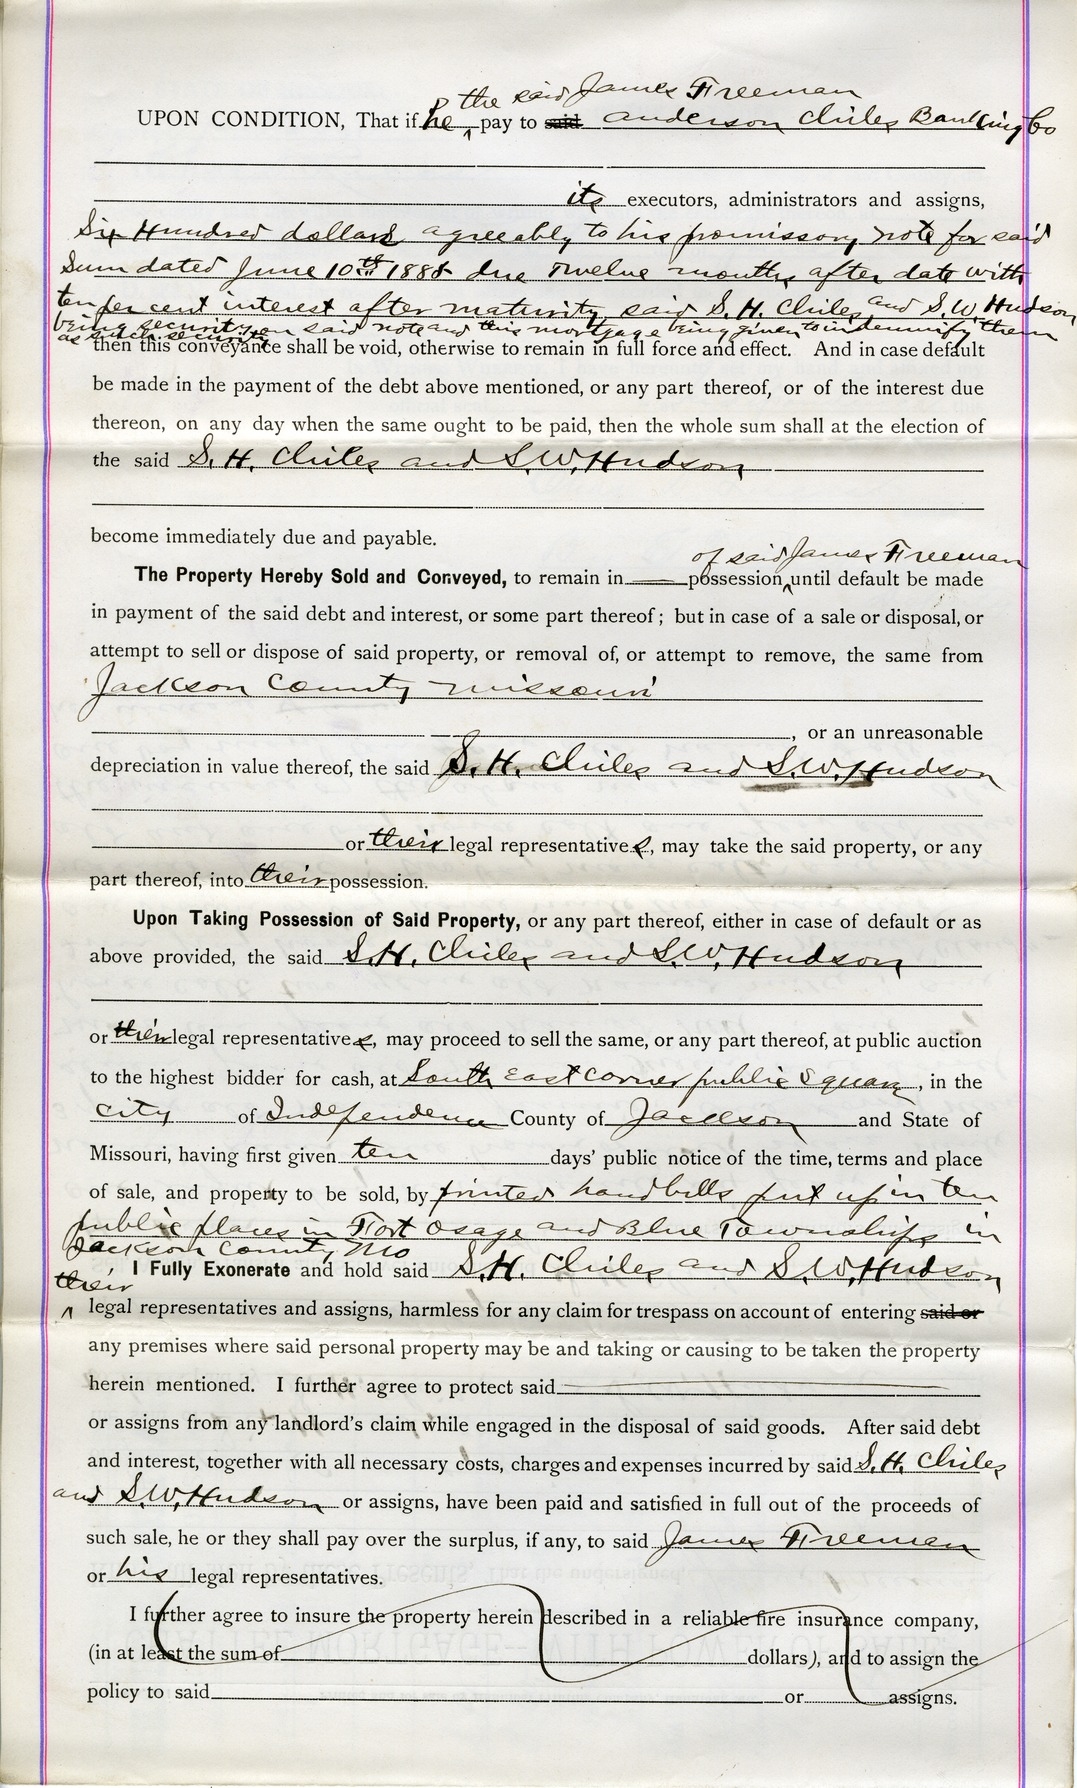 the said James Freeman
UPON CONDITION, That if he pay to said Anderson Chiles Banking Co
its executors, administrators and assigns,
Six Hundred dollars agreeably to his promissory note for said
Sum dated June 10th 1885 due Twelve months after date with
ten per cent interest after maturity said S. H. Chiles and S. W. Hudson
being security on said note and this mortgage being given to indemnify them
as such security
then this conveyance shall be void, otherwise to remain in full force and effect. And in case default
be made in the payment of the debt above mentioned, or any part thereof, or of the interest due
thereon, on any day when the same ought to be paid, then the whole sum shall at the election of
the said S. H. Chiles and S. W. Hudson
become immediately due and payable.
of said James Freeman
The Property Hereby Sold and Conveyed, to remain in possession until default be made
in payment of the said debt and interest, or some part thereof; but in case of a sale or disposal, or
attempt to sell or dispose of said property, or removal of, or attempt to remove, the same from
Jackson County Missouri
, or an unreasonable
depreciation in value thereof, the said S. H. Chiles and S. W. Hudson
or their legal representatives, may take the said property, or any
part thereof, into their possession.
Upon Taking Possession of Said Property, or any part thereof, either in case of default or as
above provided, the said S. H. Chiles and S. W. Hudson
or their legal representatives, may proceed to sell the same, or any part thereof, at public auction
to the highest bidder for cash, at South east corner public Square, in the
city of Independence County of Jackson and State of
Missouri, having first given ten days' public notice of the time, terms and place
of sale, and property to be sold, by printed handbills put up in ten
public places in Fort Osage and Blue Townships in
Jackson County Mo
I Fully Exonerate and hold said S. H. Chiles and S. W. Hudson
their
legal representatives and assigns, harmless for any claim for trespass on account of entering said or
any premises where said personal property may be and taking or causing to be taken the property
herein mentioned. I further agree to protect said
or assigns from any landlord's claim while engaged in the disposal of said goods. After said debt
and interest, together with all necessary costs, charges and expenses incurred by said S. H. Chiles
and S. W. Hudson or assigns, have been paid and satisfied in full out of the proceeds of
such sale, he or they shall pay over the surplus, if any, to said James Freeman
or his legal representatives.
I further agree to insure the property herein described in a reliable fire insurance company,
(in at least the sum of dollars), and to assign the
policy to said or assigns.